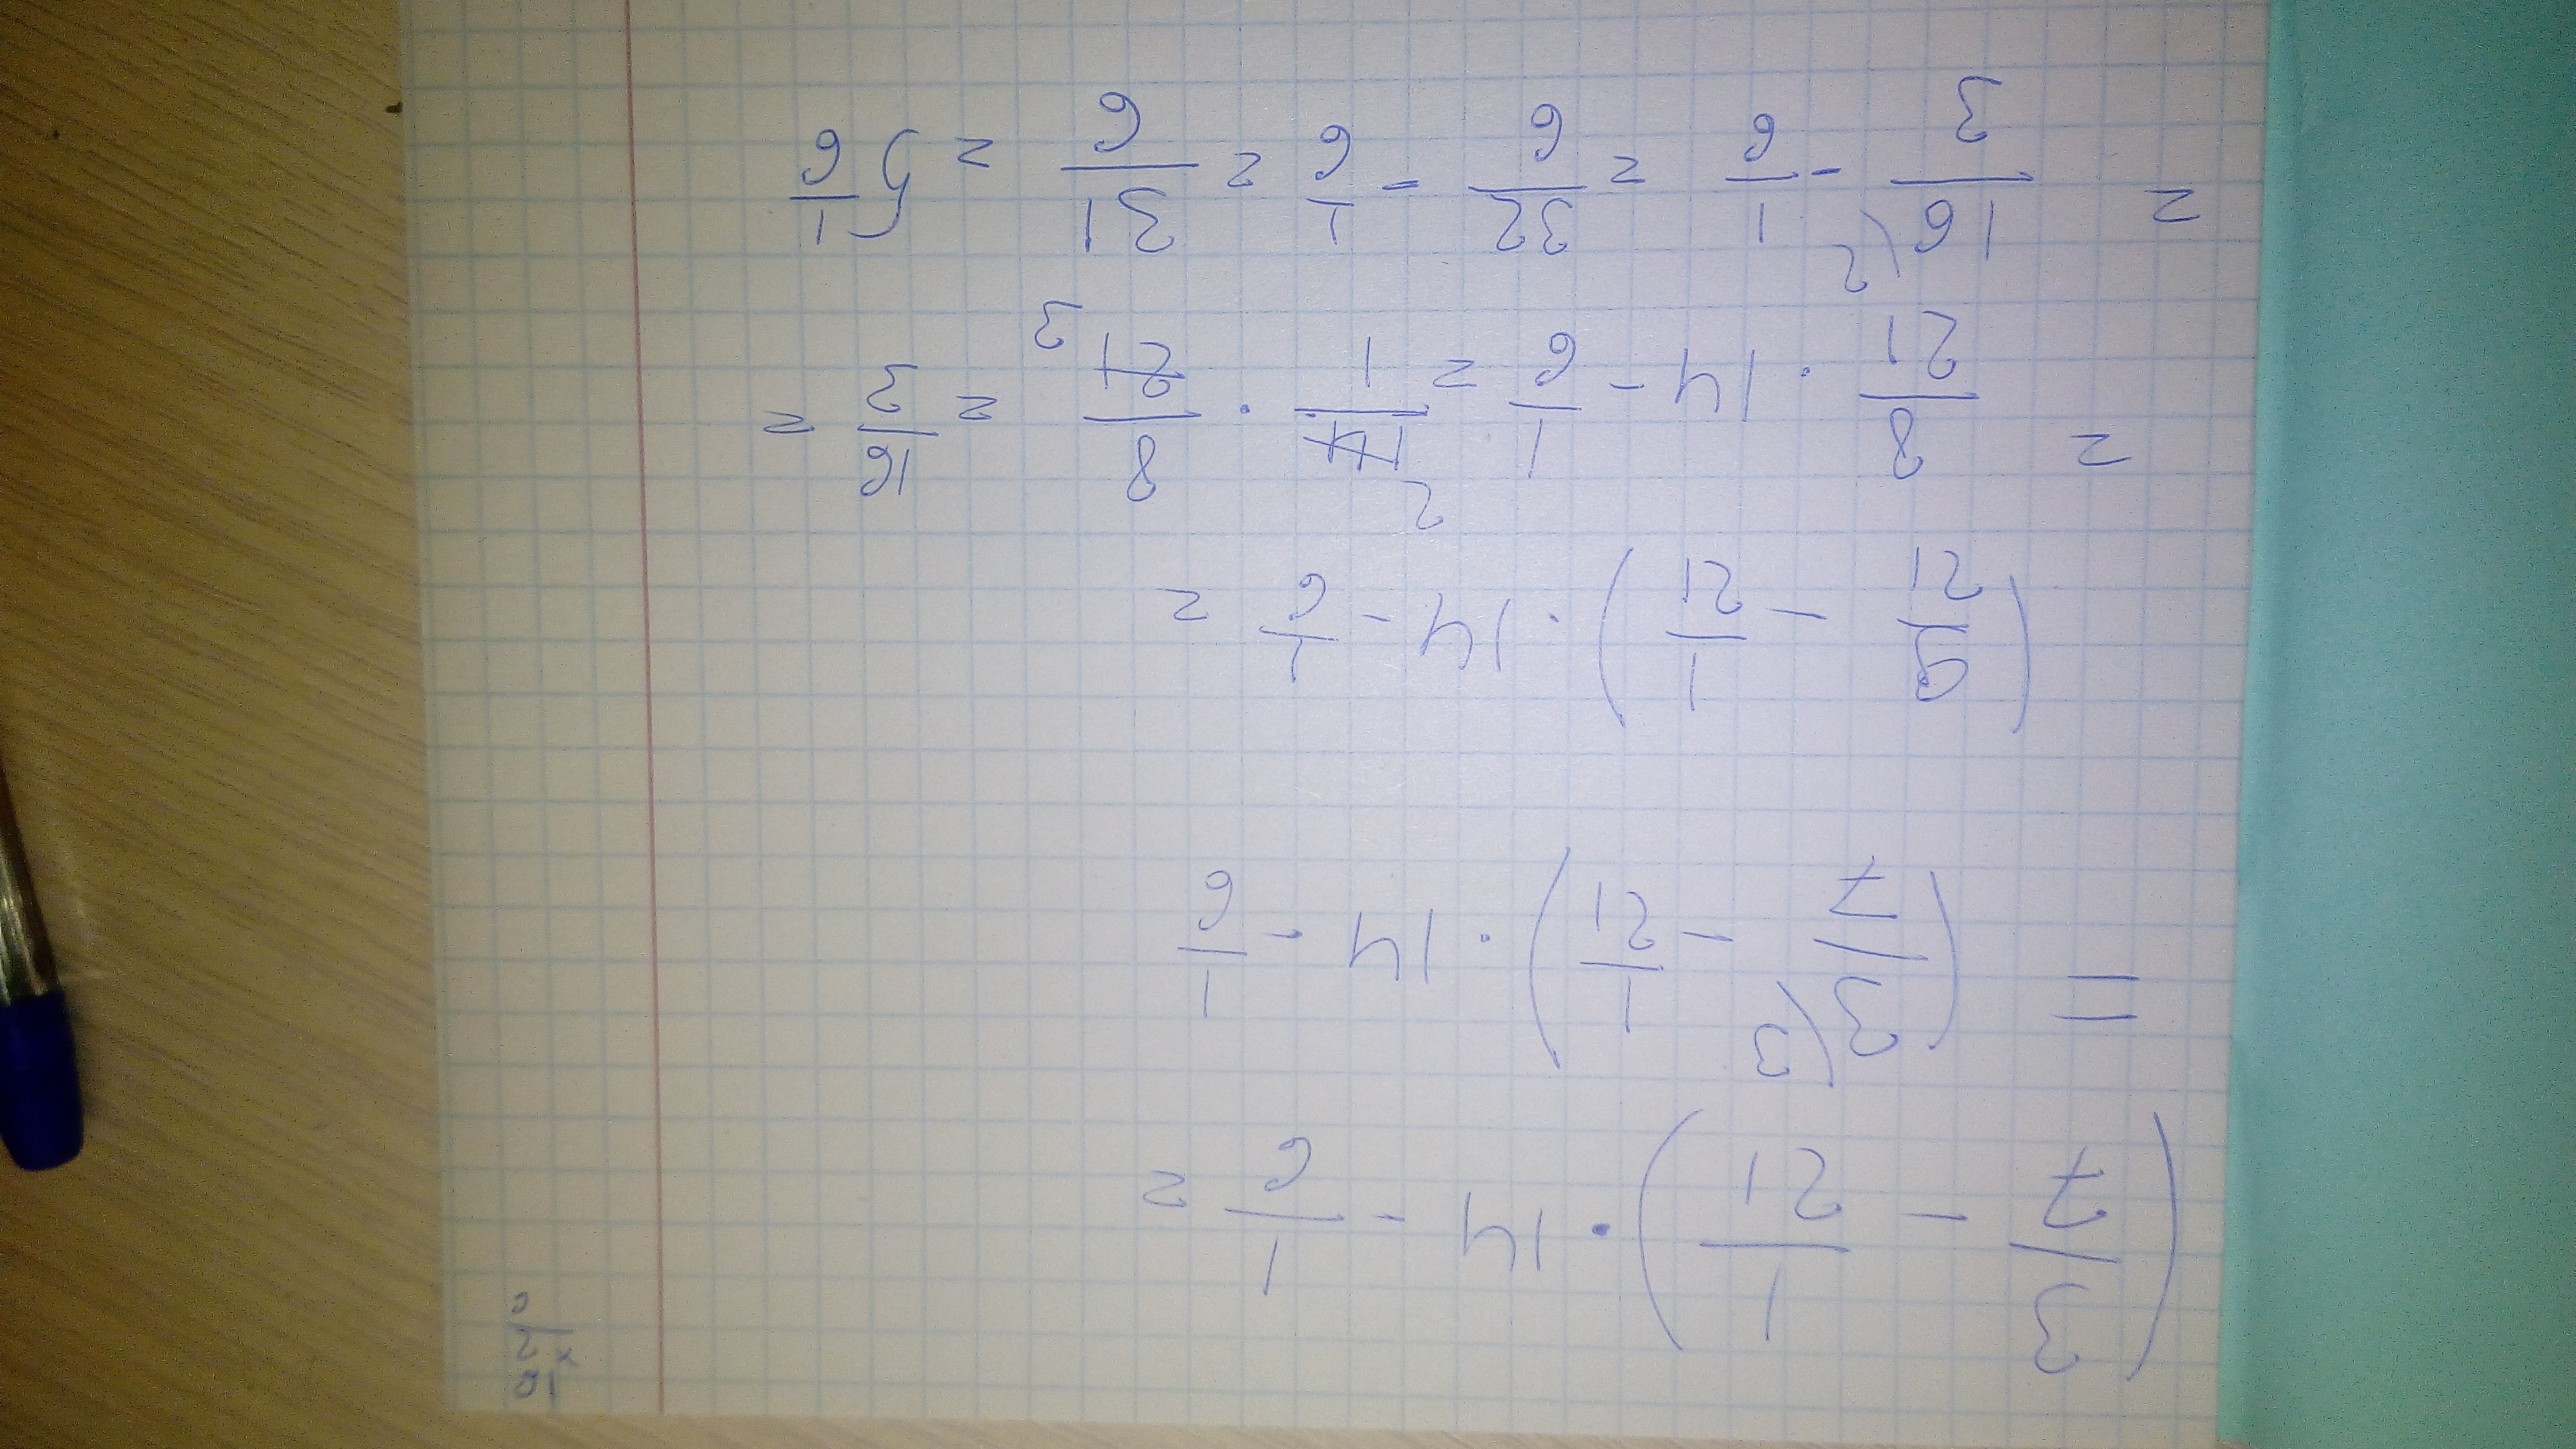 (3/7 - 1/21) · 14 - 1/6 =
= (3\3/7 - 1/21) · 14 - 1/6
(9/21 - 1/21) · 14 - 1/6 =
= 8/21 · 14 - 1/6 = 14 2/1 · 8/21 3 = 16/3 =
= 16\2/3 - 1/6 = 32/6 - 1/6 = 31/6 = 5 1/6